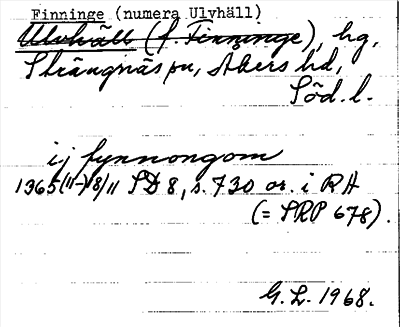 Finninge (numera Ulvhäll)
Ulvhäll (f. Finninge), hg,
Strängnäs sn, Åkers hd,
Söd. l.
ij fynnongom
1365(11–)8/11 SD 8, s. 730 or. i RA
(= SRP 678).
G. L. 1968.